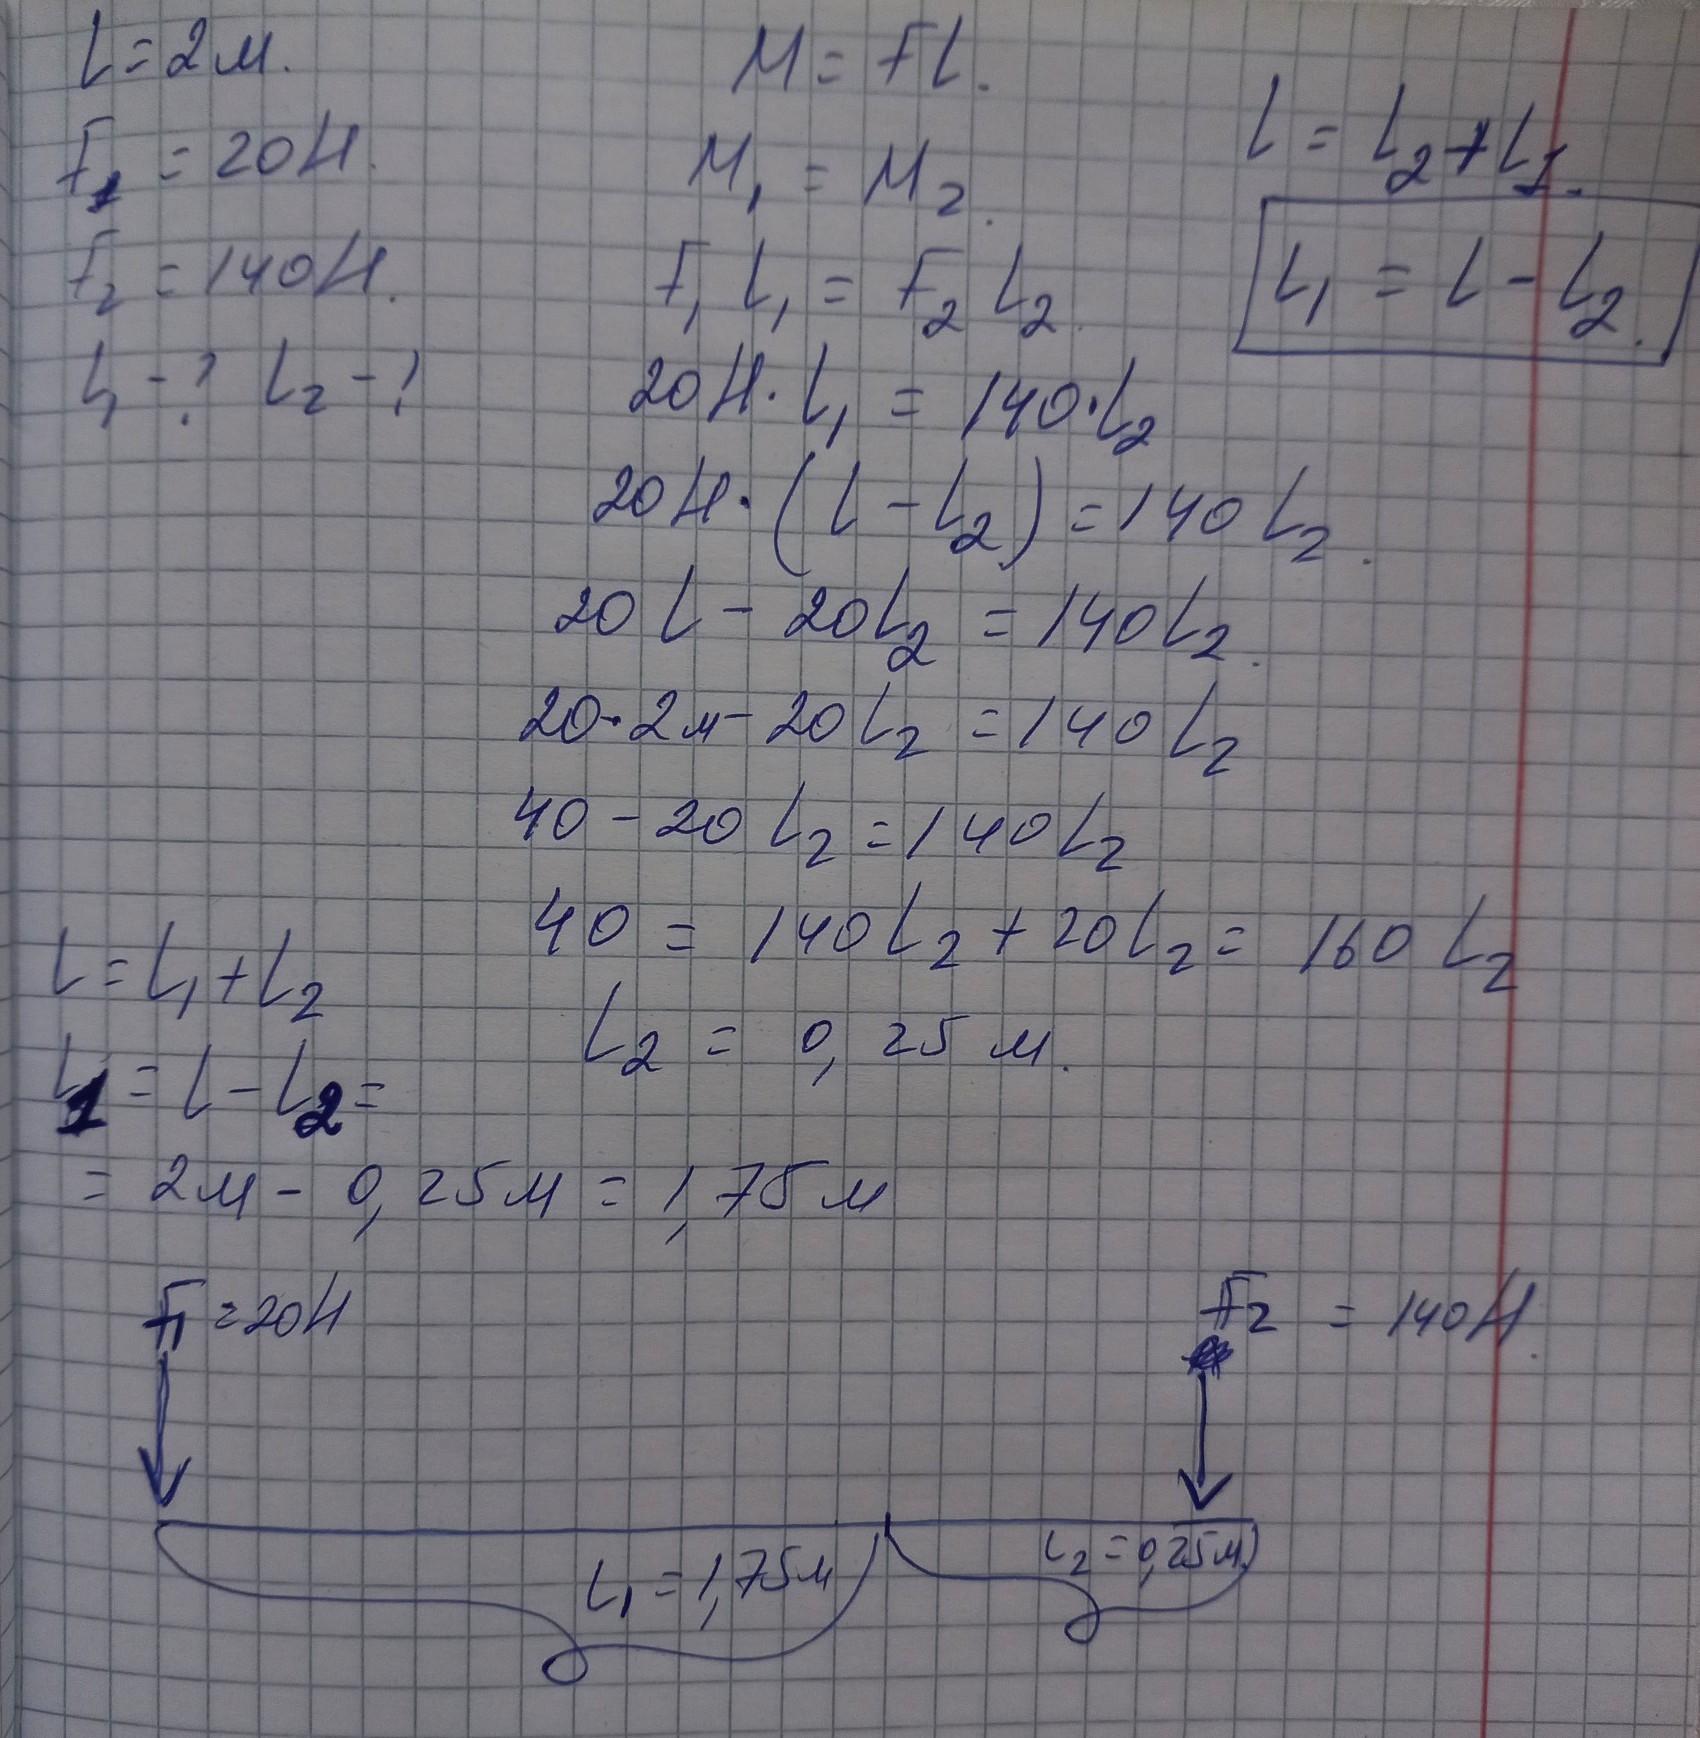 L = 2м.
F₁ = 20Н.
F₂ = 140Н.
L₁ - ? L₂ - ?
M = FL.
M₁ = M₂.
F₁ L₁ = F₂ L₂.
20Н · L₁ = 140 · L₂
20Н · (L - L₂) = 140 L₂.
20 L - 20L₂ = 140L₂.
20 · 2м - 20L₂ = 140 L₂
40 - 20 L₂ = 140L₂
40 = 140L₂ + 20L₂ = 160 L₂
L₂ = 0,25 м.
L = L₂ + L₁.
L₁ = L - L₂.
L = L₁ + L₂
L₁ = L - L₂ =
= 2м - 0,25м = 1,75м
F₁ = 20Н
F₂ = 140Н.
L₁ = 1,75м
L₂ = 0,25м.